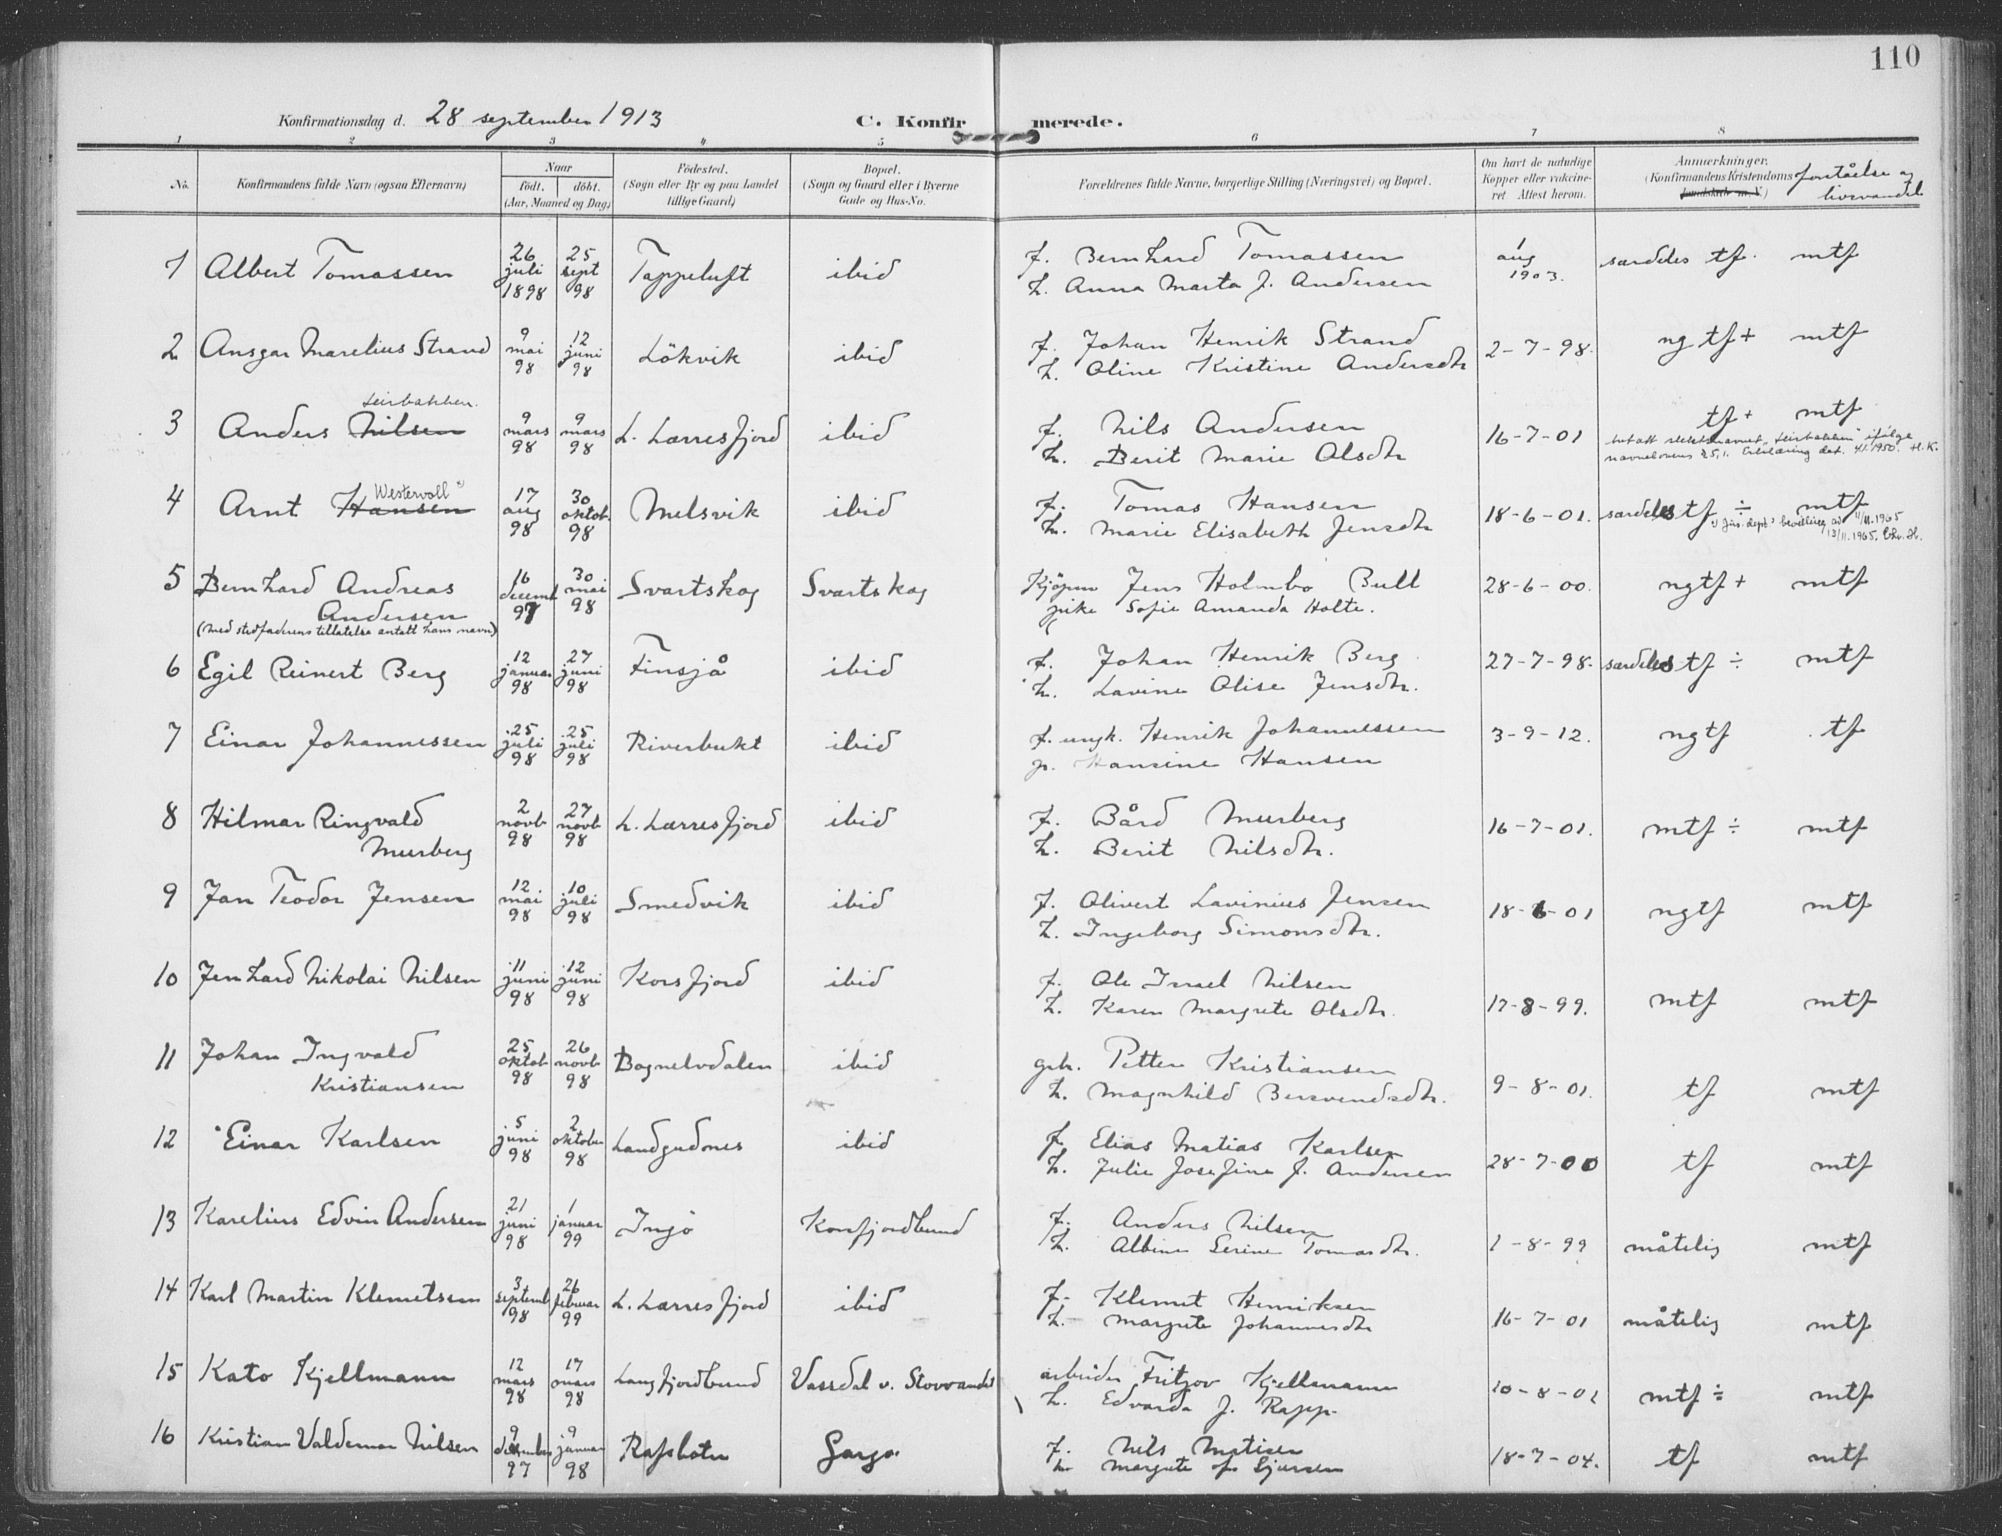 110
Konfirmationsdag d. 28 september 1913 C. Konfirmerede.
1 2 3 4 5 6 7 8
No. Konfirmandens fulde Navn (ogsaa Efternavn) Naar födt. döbt. (Aar, Maaned og Dag) Födested. (Sogn eller By og paa Landet tillige Gaard) Bopæl. (Sogn og Gaard eller i Byerne Gade og Hus-No. Forældrenes fulde Navne, borgerlige Stilling (Næringsvei) og Bopæl. Om havt de naturlige Kopper eller vaccineret Attest herom. Anmærkninger. (Konfirmandens Kristendoms forståelse og livsvandel
1 Albert Tomassen 26 juli 1898 25 sept 98 Tappeluft ibid f. Bernhard Tomassen 1 aug 1903. særdeles tf. mtf
h. Anna Marta J. Andersen
2 Ansgar Marelius Strand 9 mai 98 12 juni 98 Lökvik ibid f. Johan Henrik Strand 2-7-98. ng tf + mtf
h. Oline Kristine Andersdtr
Leirbakken.
3 Anders Nilsen 9 mars 98 9 mars 98 L. Lerresfjord ibid f. Nils Andersen 16-7-01 tf + mtf
h. Berit Marie Olsdtr
antatt slektsnavnet "Leirbakken" ifølge
navnelovens § 5,1. Erklæring dat. 4/1 1950. H.K.
Westervoll
4 Arnt Hansen 17 aug 98 30 oktob. 98 Melsvik ibid f. Tomas Hansen 18-6-01. særdeles tf ÷ mtf
h. Marie Elisabeth Jensdtr
Jus. dept's bevilling av 11/11.1965
13/11.1965. Chr. H.
5 Bernhard Andreas Andersen 16 decemb 97 30 mai 98 Svartskog Svartskog Kjöpm Jens Holmbo Bull 28-6-00. ngtf + mtf
pike Sofie Amanda Holte.
(med stedfaderens tillatelse antatt hans navn)
6 Egil Reinert Berg 12 januar 98 27 juni 98 Finsjå ibid f. Johan Henrik Berg 27-7-98. særdeles tf ÷ mtf
h. Lavine Olise Jensdtr.
7 Einar Johannessen 25 juli 98 25 juli 98 Riverbukt ibid f. ungk. Henrik Johannessen 3-9-12. ngtf tf
p. Hansine Hansen
8 Hilmar Ringvald Murberg 2 novb 98 27 novb 98 L. Lerresfjord ibid f. Bård Murberg 16-7-01. mtf ÷ mtf
h. Berit Nilsdtr.
9 Jan Teodor Jensen 12 mai 98 10 juli 98 Smedvik ibid f. Olivert Lavinius Jensen 18-6-01 ngtf mtf
h. Ingeborg Simonsdtr.
10 Jenhard Nikolai Nilsen 11 juni 98 12 juni 98 Korsfjord ibid f. Ole Israel Nilsen 17-8-99. mtf mtf
h. Karen Margrete Olsdtr.
11 Johan Ingvald Kristiansen 25 oktob 98 26 novb 98 Bognelvdalen ibid gbr. Petter Kristiansen 9-8-01. tf mtf
h. Magnhild Bersvendsdtr.
12 Einar Karlsen 5 juni 98 2 oktober 98 Landgudnes ibid f. Elias Matias Karlsen 28-7-00 tf mtf
h. Julie Josefine J. Andersen
13 Karelius Edvin Andersen 21 juni 98 1 januar 99 Ingö Korsfjordbund f. Anders Nilsen 1-8-99 måtelig mtf
h. Albine Serine Tomasdtr.
14 Karl Martin Klemetsen 3 septemb 98 26 februar 99 L. Lerresfjord ibid f. Klemet Henriksen 16-7-01 måtelig mtf
h. Margrete Johannesdtr
15 Kato Kjellmann 12 mars 98 17 mars 98 Langfjordbund Vassdal v. Storvandet arbeider Fritjov Kjellmann 10-8-01 mtf ÷ mtf
h. Edvarda J. Rapp.
16 Kristian Valdemar Nilsen 9 december 97 9 januar 98 Rafsbotn Gargo f. Nils Matisen 18-7-04. tf mtf
h. Margrete